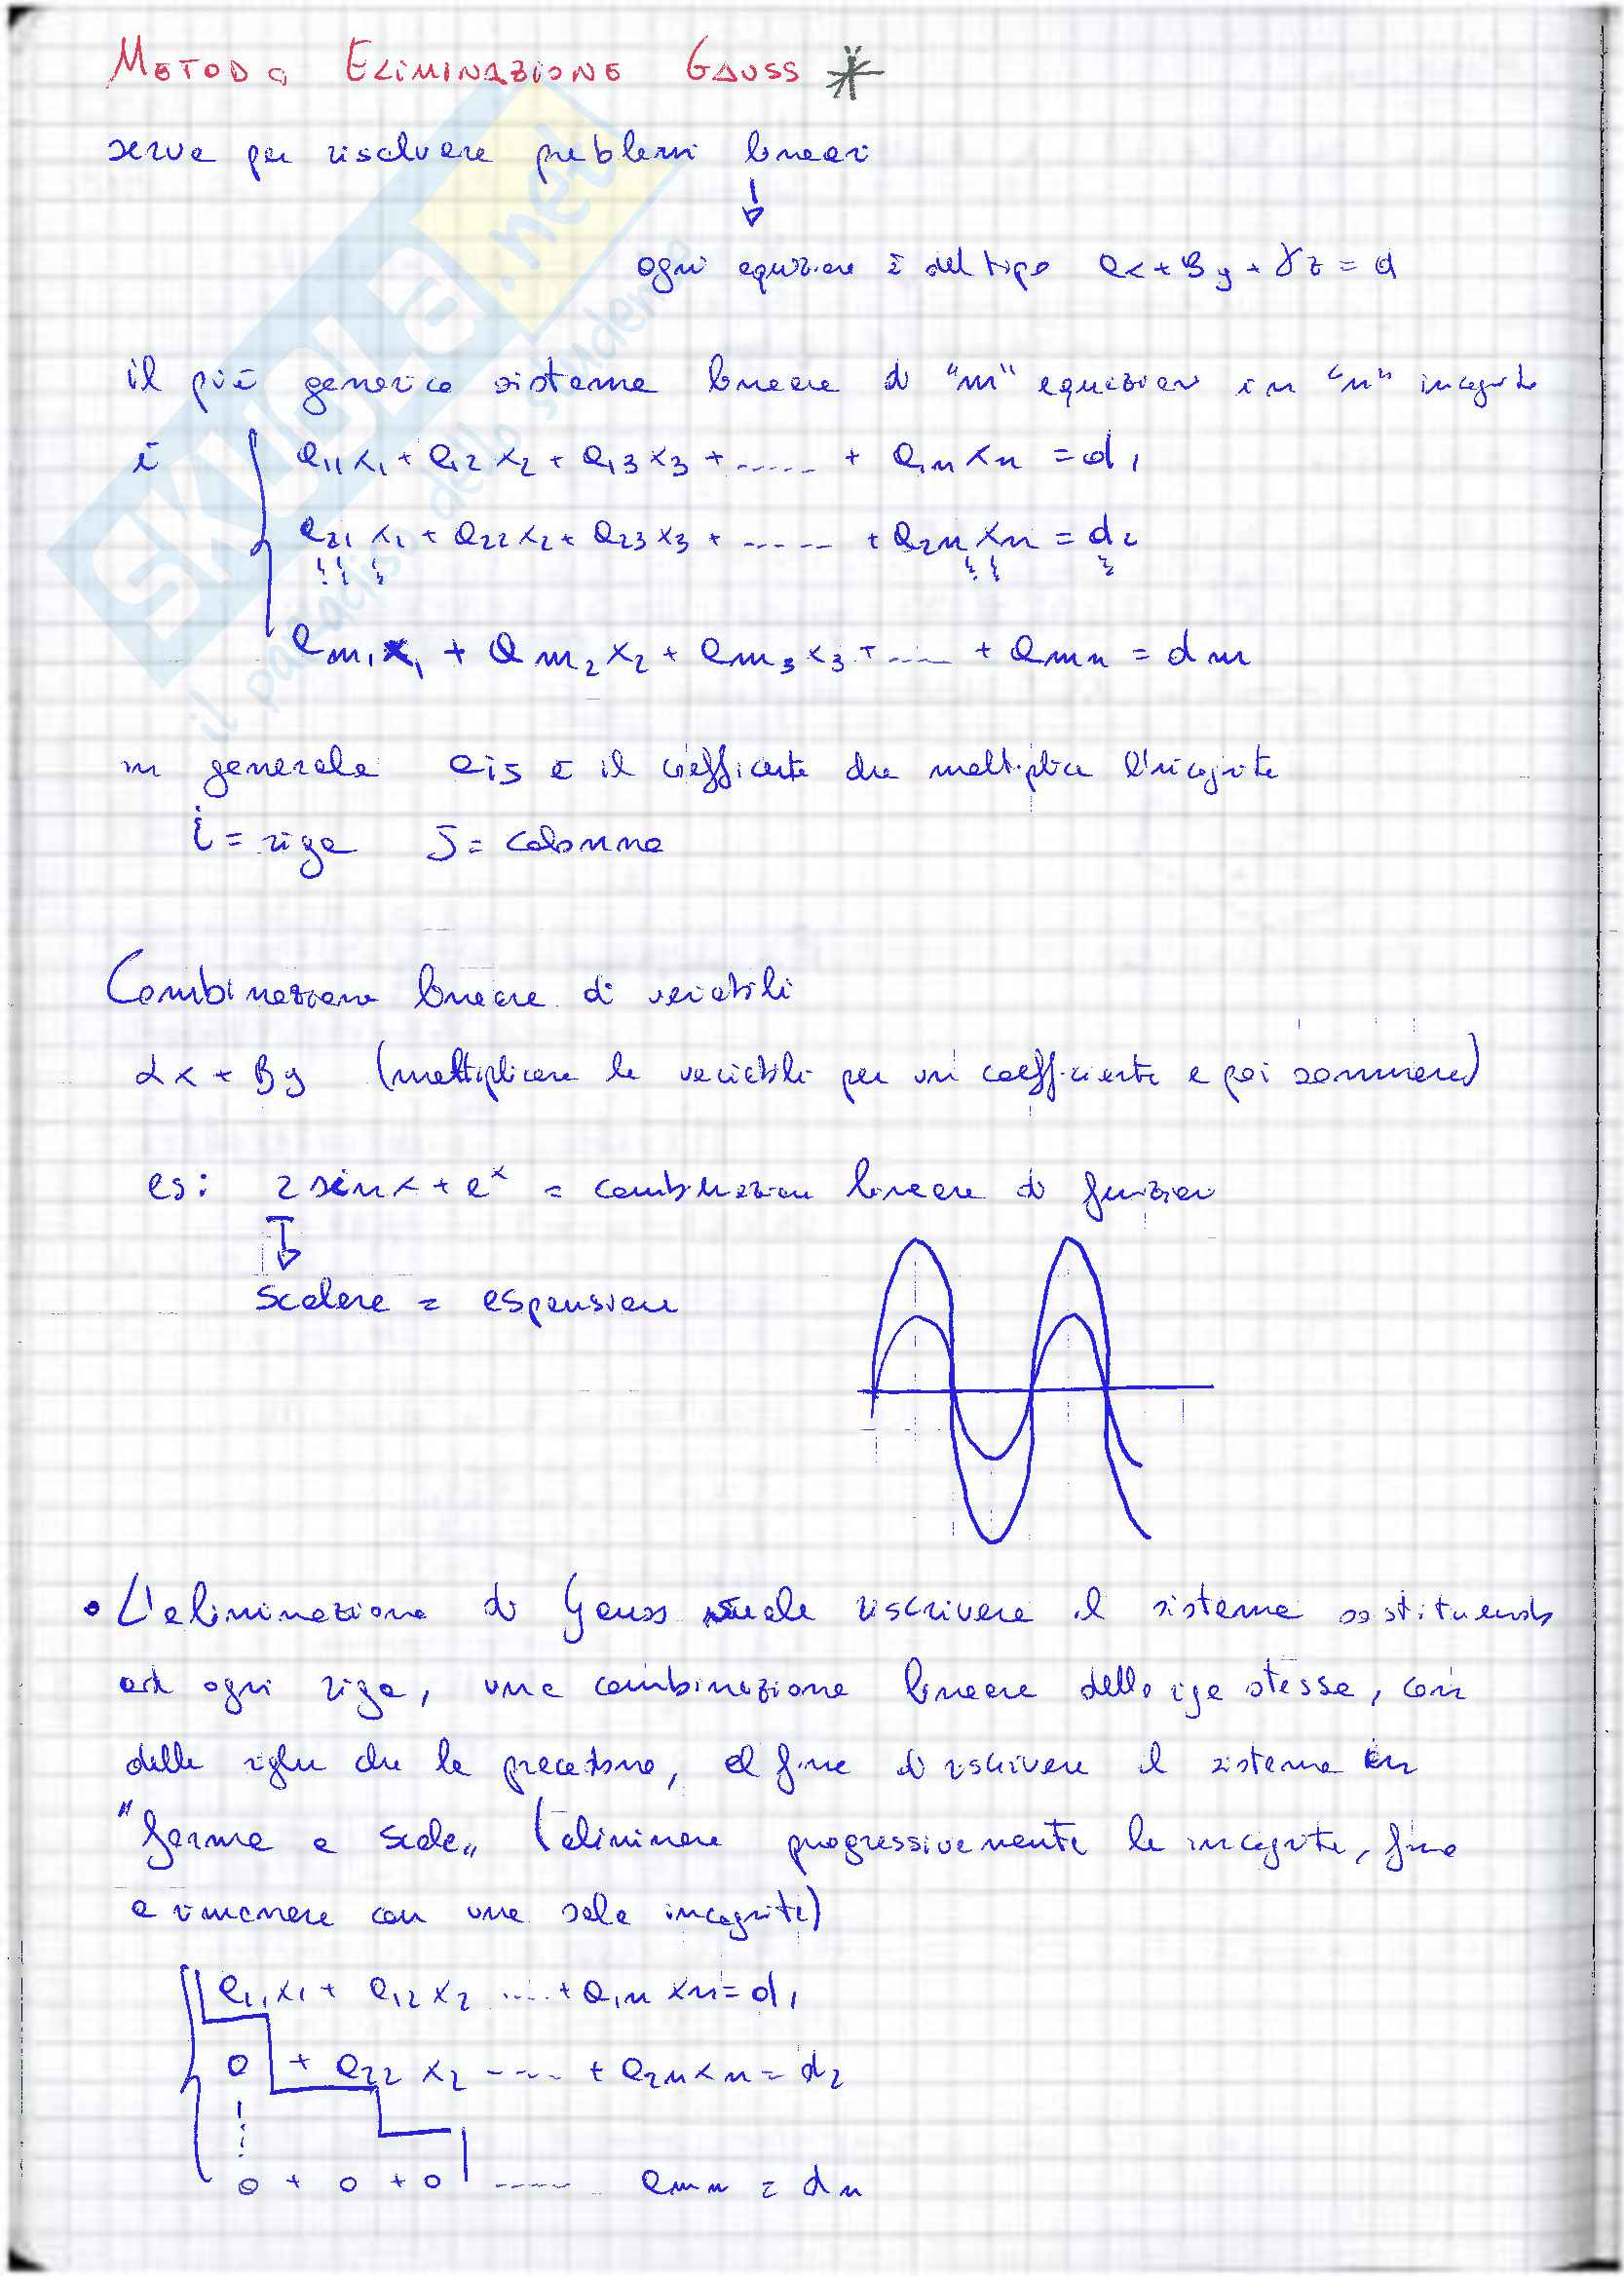 METODO ELIMINAZIONE GAUSS *
serve per risolvere problemi lineari
↓
ogni equazione è del tipo αx + βy + γz = d
il più generico sistema lineare di "m" equazioni in "n" incognite
è
a₁₁x₁ + a₁₂x₂ + a₁₃x₃ + ...... + a₁ₙxₙ = d₁
a₂₁x₁ + a₂₂x₂ + a₂₃x₃ + ...... + a₂ₙxₙ = d₂
aₘ₁x₁ + aₘ₂x₂ + aₘ₃x₃ + ..... + aₘₙ = dₘ
in generale aij è il coefficiente che moltiplica l'incognita
i = riga J = colonna
Combinazione lineare di variabili
αx + βy (moltiplicare le variabili per un coefficiente e poi sommare)
es: 2 sin x + eˣ = combinazione lineare di funzioni
↓
scalare = espansione
• L'eliminazione di Gauss vuole riscrivere il sistema sostituendo
ad ogni riga, una combinazione lineare della riga stessa, con
delle righe che la precedono, al fine di riscrivere il sistema in
"forma a scala" (eliminare progressivamente le incognite, fino
a rimanere con una sola incognita)
a₁₁x₁ + a₁₂x₂ .... + a₁ₙxₙ = d₁
0 + a₂₂x₂ ---- + a₂ₙxₙ = d₂
0 + 0 + 0 ----- aₘₙ = dₙ
SKUOLA.net
il paradiso dello studente